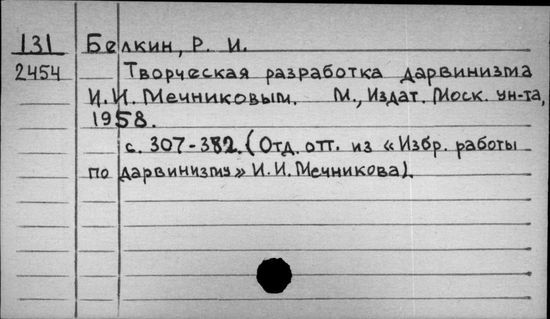 131 Белкин, Р. И.
2454 Творческая разработка дарвинизма
И.И. Мечниковым. М., Издат. Моск. ун-та,
1958.
с. 307-382. (Отд. отт. из «Избр. работы
по дарвинизму» И.И. Мечникова).